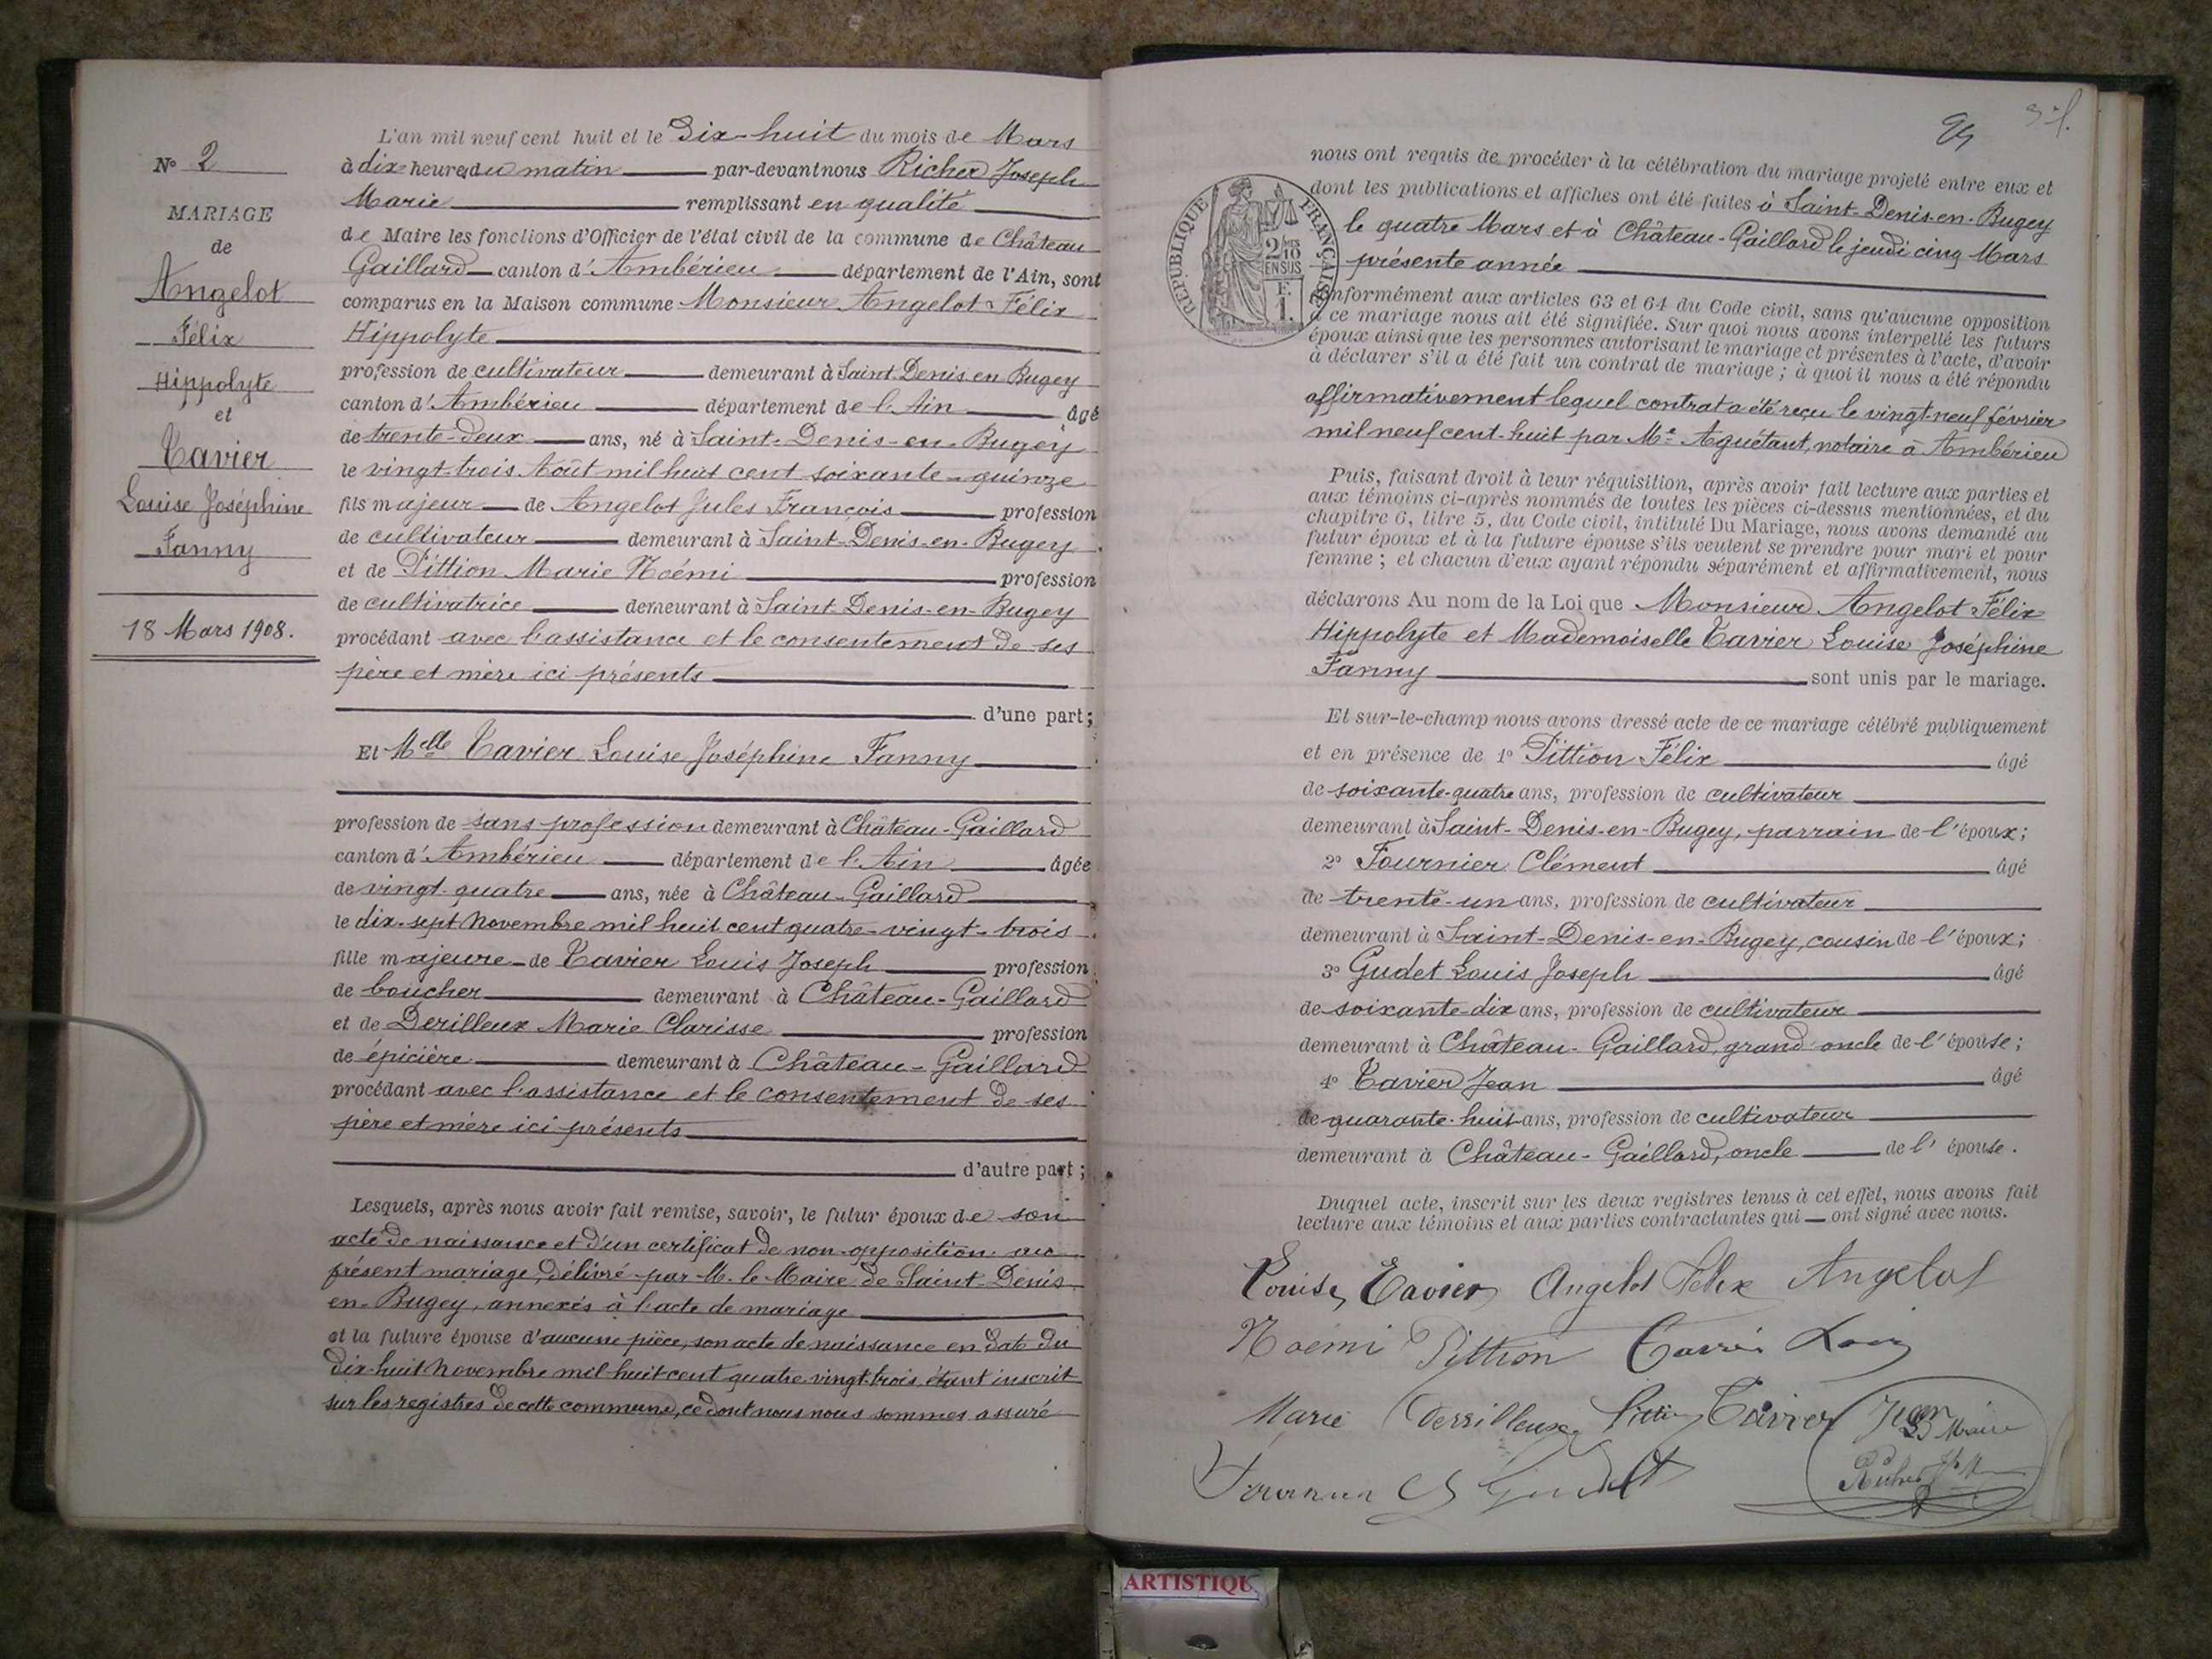 N° 2
MARIAGE
de
Angelot
Félix
Hippolyte
et
Tavier
Louise Joséphine
Fanny
18 Mars 1908.
L'an mil neuf cent huit et le Dix-huit du mois de Mars
à dix heures du matin par-devant nous Richer Joseph
Marie remplissant en qualité
de Maire les fonctions d'Officier de l'état civil de la commune de Château
Gaillard canton d'Ambérieu département de l'Ain, sont
comparus en la Maison commune Monsieur Angelot Félix
Hippolyte
profession de cultivateur demeurant à Saint-Denis en Bugey
canton d'Ambérieu département de l'Ain âgé
de trente-deux ans, né à Saint-Denis-en-Bugey
le vingt-trois Août mil huit cent soixante-quinze
fils majeur de Angelot Jules François profession
de cultivateur demeurant à Saint-Denis-en-Bugey
et de Pittion Marie Noémi profession
de cultivatrice demeurant à Saint Denis-en-Bugey
procédant avec l'assistance et le consentement de ses
père et mère ici présents
d'une part;
Et Melle Tavier Louise Joséphine Fanny
profession de sans profession demeurant à Château-Gaillard
canton d'Ambérieu département de l'Ain âgée
de vingt-quatre ans, née à Château-Gaillard
le dix-sept Novembre mil huit cent quatre-vingt-trois
fille majeure de Tavier Louis Joseph profession
de boucher demeurant à Château-Gaillard
et de Derilleux Marie Clarisse profession
de épicière demeurant à Château-Gaillard
procédant avec l'assistance et le consentement de ses
père et mère ici présents
d'autre part;
Lesquels, après nous avoir fait remise, savoir, le futur époux de son
acte de naissance et d'un certificat de non-opposition au
présent mariage, délivré par M. le Maire de Saint-Denis
en-Bugey, annexés à l'acte de mariage
et la future épouse d'aucune pièce, son acte de naissance en date du
dix-huit Novembre mil huit cent quatre-vingt-trois, étant inscrit
sur les registres de cette commune, ce dont nous nous sommes assuré
nous ont requis de procéder à la célébration du mariage projeté entre eux et
dont les publications et affiches ont été faites à Saint-Denis-en-Bugey
le quatre Mars et à Château-Gaillard le jeudi cinq Mars
présente année
conformément aux articles 63 et 64 du Code civil, sans qu'aucune opposition
à ce mariage nous ait été signifiée. Sur quoi nous avons interpellé les futurs
époux ainsi que les personnes autorisant le mariage et présentes à l'acte, d'avoir
à déclarer s'il a été fait un contrat de mariage; à quoi il nous a été répondu
affirmativement lequel contrat a été reçu le vingt-neuf février
mil neuf cent-huit par Me Aguétant, notaire à Ambérieu
Puis, faisant droit à leur réquisition, après avoir fait lecture aux parties et
aux témoins ci-après nommés de toutes les pièces ci-dessus mentionnées, et du
chapitre 6, titre 5, du Code civil, intitulé Du Mariage, nous avons demandé au
futur époux et à la future épouse s'ils veulent se prendre pour mari et pour
femme; et chacun d'eux ayant répondu séparément et affirmativement, nous
déclarons Au nom de la Loi que Monsieur Angelot Félix
Hippolyte et Mademoiselle Tavier Louise Joséphine
Fanny sont unis par le mariage.
Et sur-le-champ nous avons dressé acte de ce mariage célébré publiquement
et en présence de 1° Pittion Félix âgé
de soixante-quatre ans, profession de cultivateur
demeurant à Saint-Denis-en-Bugey, parrain de l'époux;
2° Fournier Clément âgé
de trente-un ans, profession de cultivateur
demeurant à Saint-Denis-en-Bugey, cousin de l'époux;
3° Gudet Louis Joseph âgé
de soixante-dix ans, profession de cultivateur
demeurant à Château-Gaillard, grand oncle de l'épouse;
4° Tavier Jean âgé
de quarante-huit ans, profession de cultivateur
demeurant à Château-Gaillard, oncle de l'épouse.
Duquel acte, inscrit sur les deux registres tenus à cet effet, nous avons fait
lecture aux témoins et aux parties contractantes qui ont signé avec nous.
Louise Tavier Angelot Félix Angelot
Noémi Pittion
Marie Derilleux Tavier Jean
Gudet
RÉPUBLIQUE FRANÇAISE
2/10 EN SUS
F. 1.
ARTISTIQU